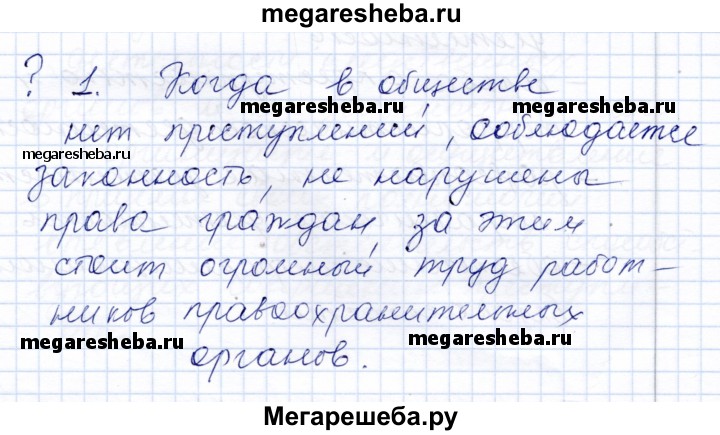 megaresheba.ru
? 1. Когда в обществе
megaresheba.ru megaresheba.ru
нет преступлений, соблюдается
megaresheba.ru
законность, не нарушены
права граждан, за этим
стоит огромный труд работ-
ников правоохранительных
megaresheba.ru megaresheba.ru
органов.
Мегарешеба.ру